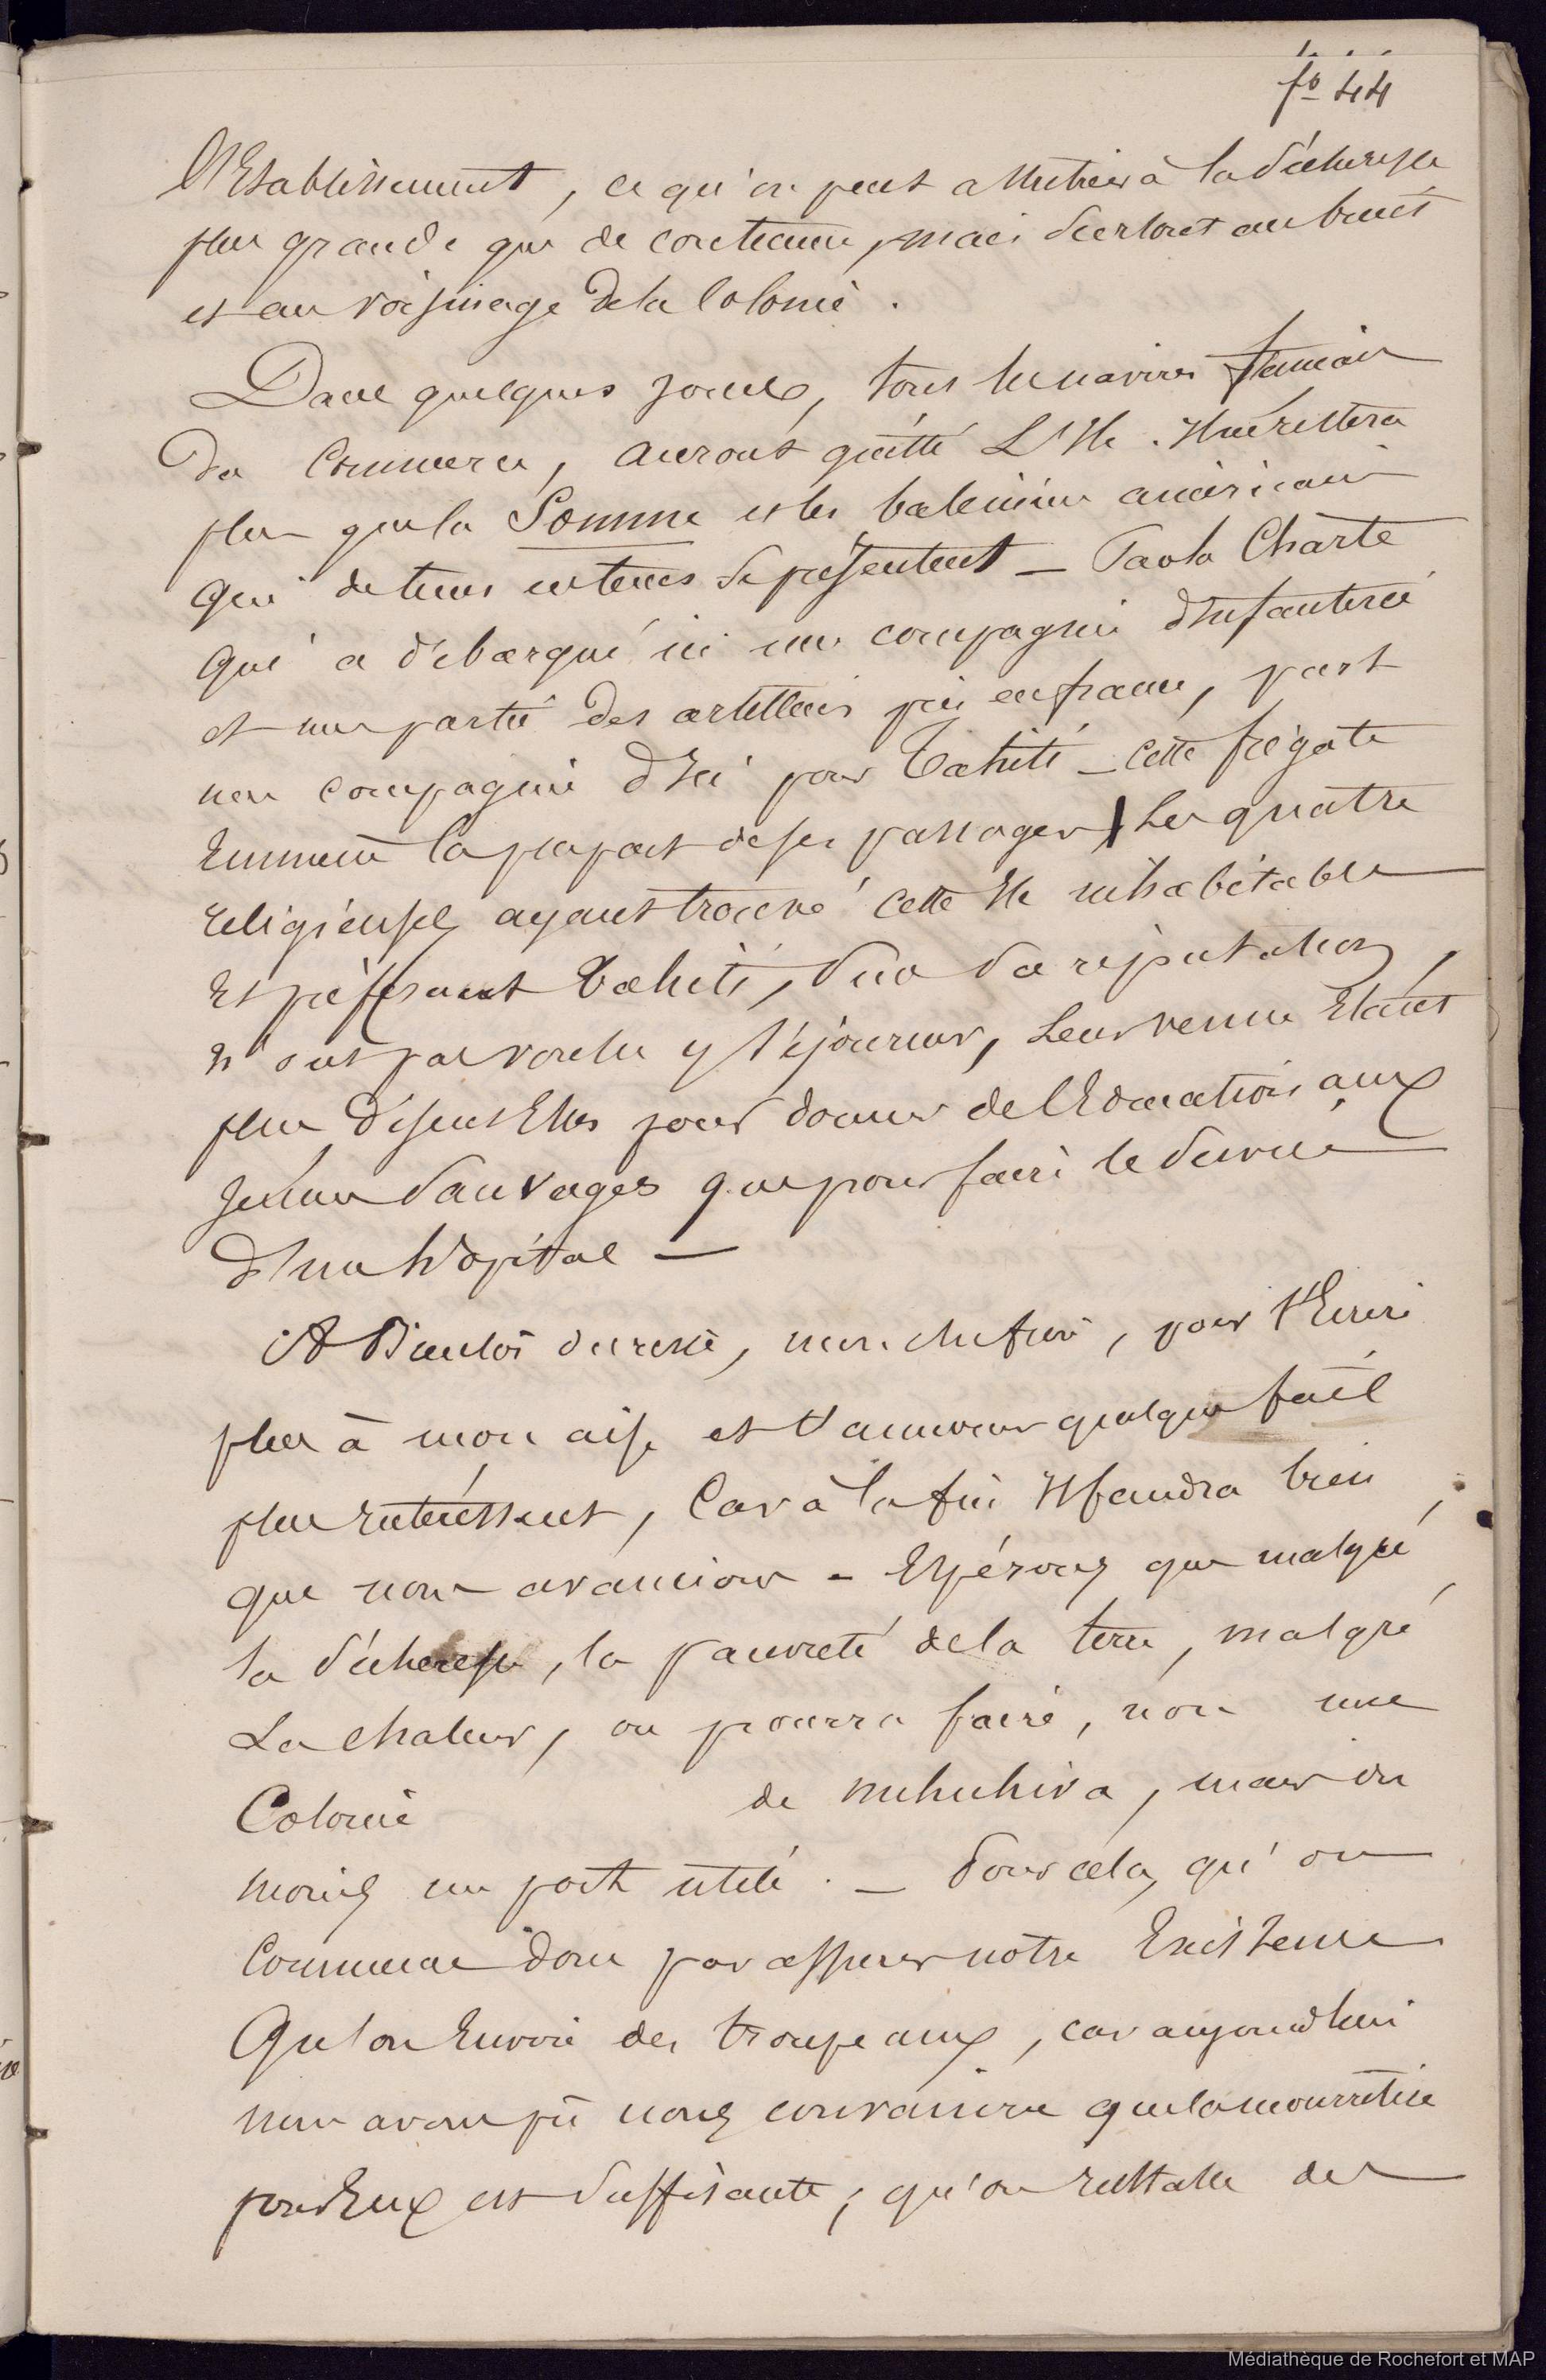 fo 44
l'Etablissement, ce qu'on peut attribuer à la Sécheresse
plus grande que de coutume, mais Surtout au bruit
et au voisinage de la Colonie.
Dans quelques jours, tous les navires français
du Commerce, auront quitté L'Ile. Il ne restera
plus que la Somme et les baleiniers américains
Qui de tems en tems Se présentent — La Charte
Qui a débarqué ici une compagnie d'Infanterie
et une partie des artilleurs pris en france, part
une compagnie d'Ici pour Tahiti — cette frégate
Emmène la plupart de ses passagers, Les quatre
religieuses ayant trouvé cette Ile inhabitable
Et préférant Tahiti, Sur Sa réputation,
n'ont pas voulu y Séjourner, Leur venue Etant
plus disent Elles pour donner de l'Education aux
Jeunes Sauvages que pour faire le Service
d'un hôpital —
A Bientôt du reste, mon cher frère, pour t'Ecrire
plus à mon aise et t'annoncer quelque fait
plus Intéressant, Car à la fin Il faudra bien
que nous avancions - Espérons que malgré
la Sécheresse, la pauvreté de la terre, malgré
La chaleur, on pourra faire, non une
Colonie de nuhuhiva, mais du
moins un port utile. — Pour cela, qu'on
Commence donc par assurer notre Existence
Qu'on Envoie des troupeaux, car aujourd'hui
nous avons pû nous convaincre que la nourriture
pour Eux est Suffisante, qu'on Installe des
Médiathèque de Rochefort et MAP